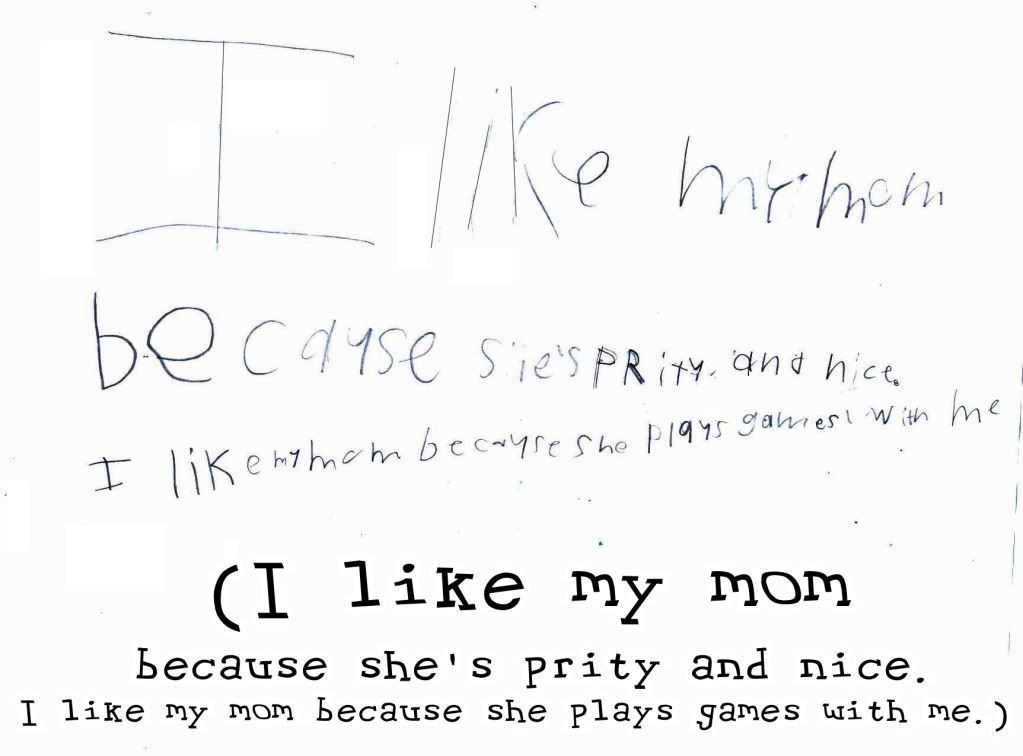 I like my mom
because s.ie's PRity. and nice.
I like my mom because she plays games! with me
(I like my mom
because she's prity and nice.
I like my mom because she plays games with me.)